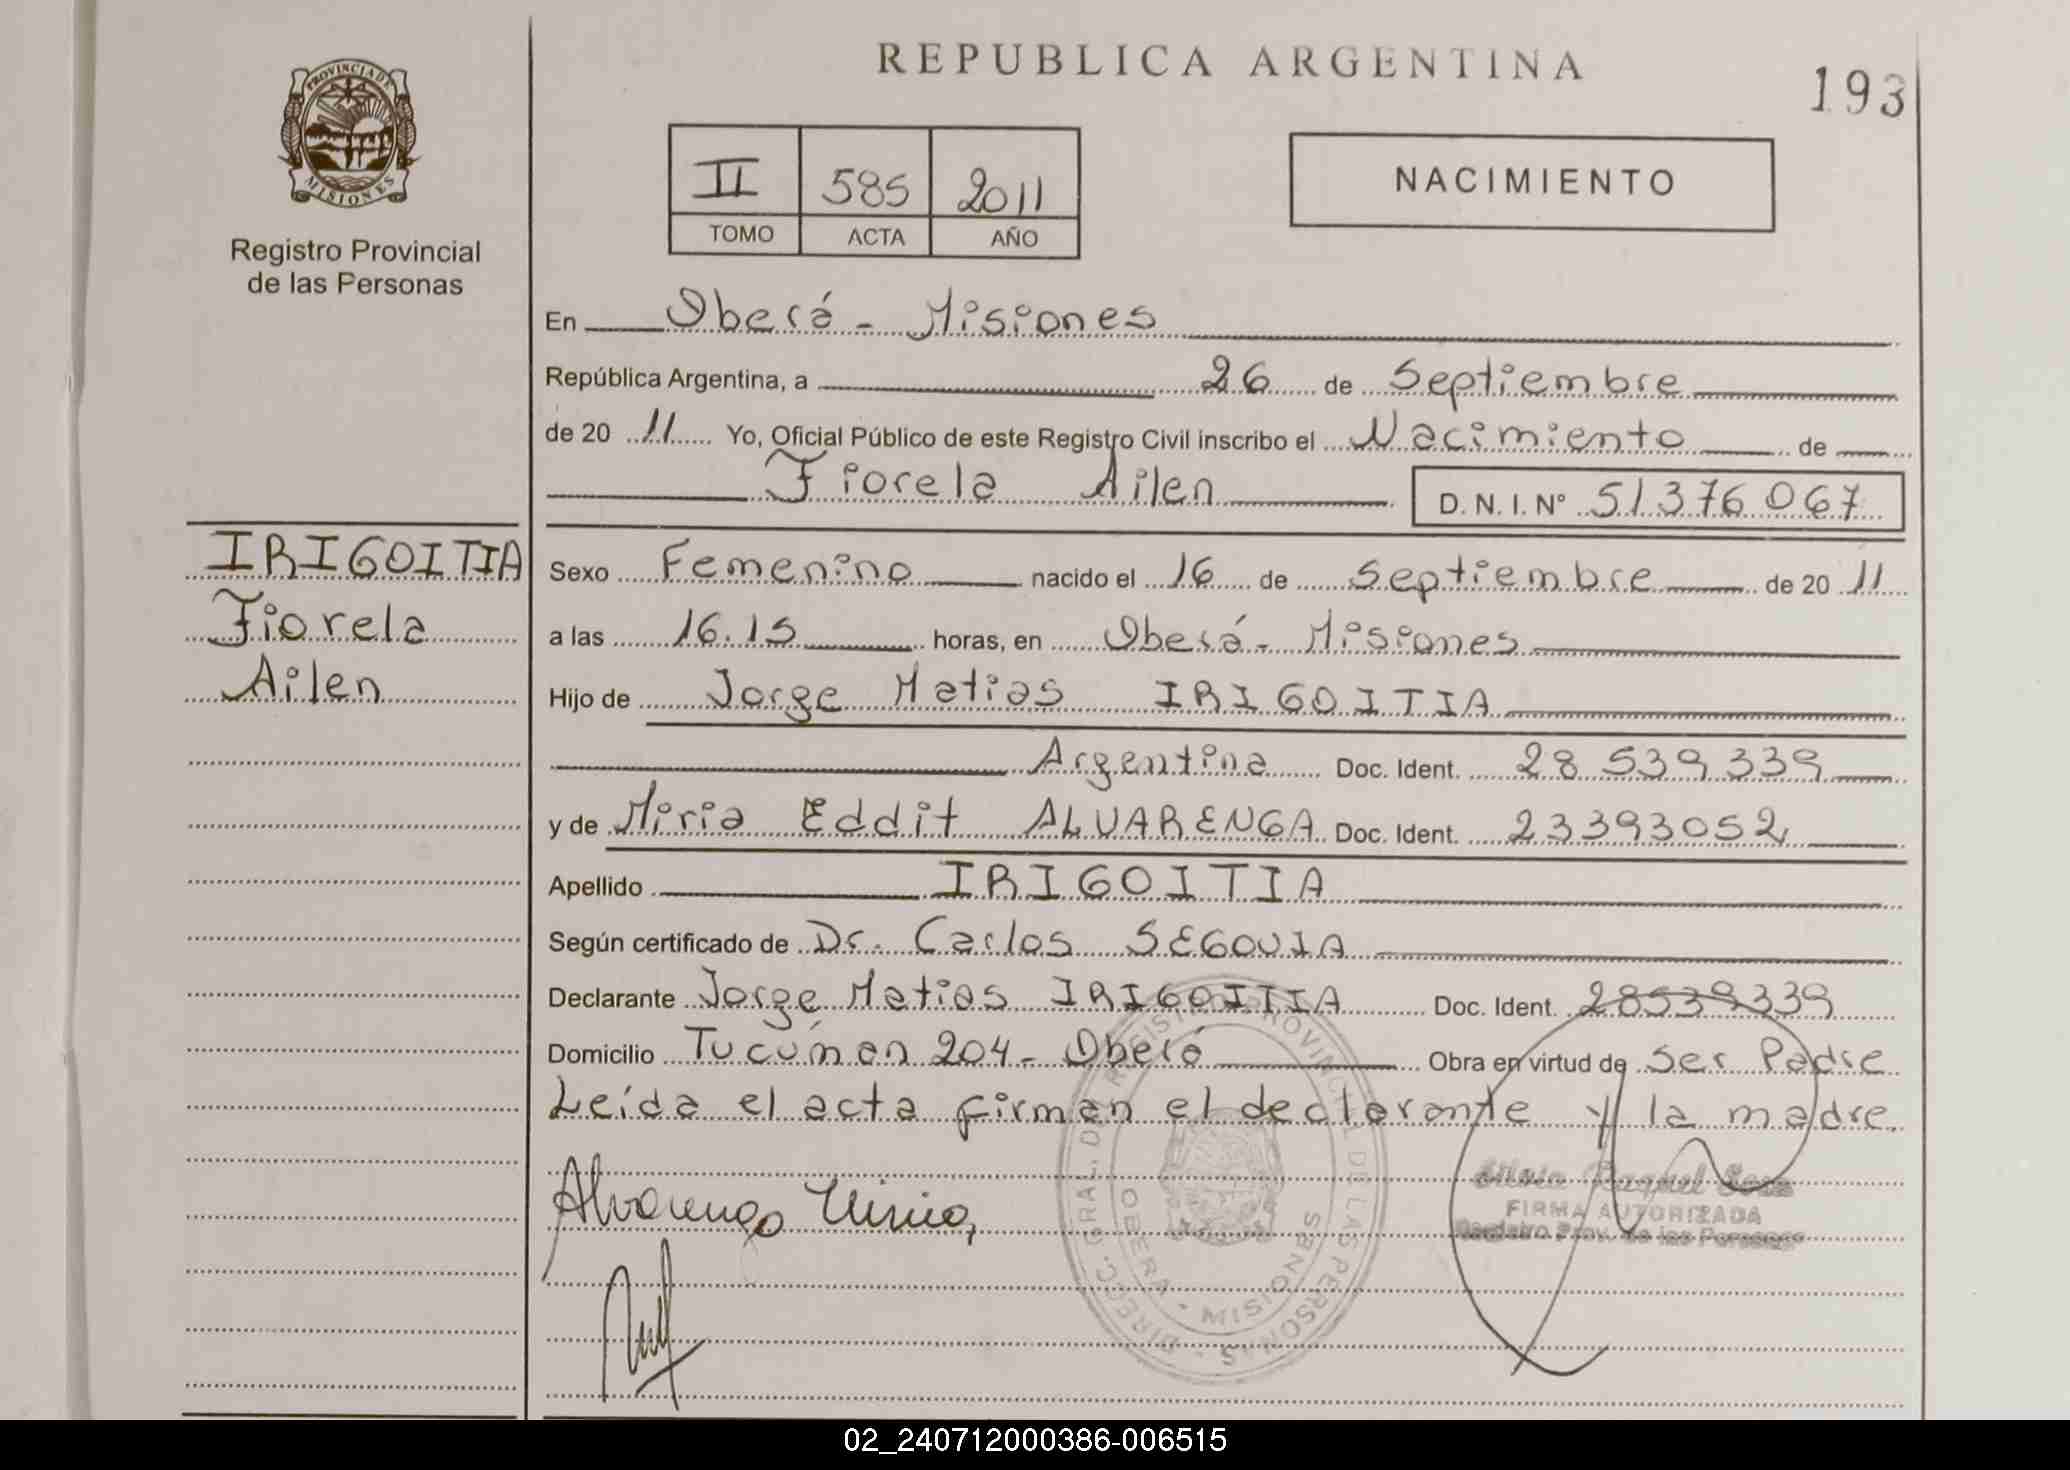 REPUBLICA ARGENTINA
193
PROVINCIA DE
MISIONES
Registro Provincial
de las Personas
II 585 2011
TOMO ACTA AÑO
NACIMIENTO
En Oberá - Misiones
República Argentina, a 26 de Septiembre
de 20 11 Yo, Oficial Público de este Registro Civil inscribo el Nacimiento de
Fiorela Ailen D. N. I. Nº 51376067
IRIGOITIA
Fiorela
Ailen
Sexo Femenino nacido el 16 de Septiembre de 20 11
a las 16.15 horas, en Oberá - Misiones
Hijo de Jorge Matias IRIGOITIA
Argentina Doc. Ident. 28 539 339
y de Miria Eddit ALVARENGA Doc. Ident. 23393052
Apellido IRIGOITIA
Según certificado de Dr. Carlos SEGOVIA
Declarante Jorge Matias IRIGOITIA Doc. Ident. 28539339
Domicilio Tucúman 204 - Oberá Obra en virtud de ser Padre
Leída el acta firman el declarante y la madre.
Alvarenga Miria
DIRECC. GRAL. DEL REGISTRO PROVINCIAL DE LAS PERSONAS
OBERA - MISIONES
Raquel
FIRMA AUTORIZADA
Registro Prov. de las Personas
02_240712000386-006515